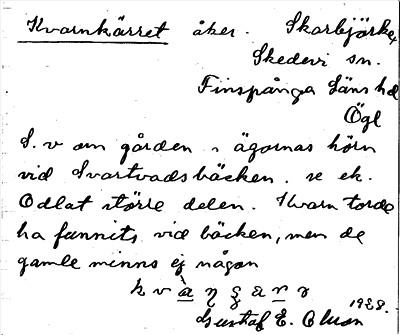 Kvarnkärret åker. Skarbjörke,
Skedevi sn.
Finspånga Läns hd
Ögl
S.v om gården i ägornas hörn
vid Svartvadsbäcken. se ek.
Odlat större delen. Kvarn torde
ha funnits vid bäcken, men de
gamle minns ej någon
1928.
Gustaf E. Olsson